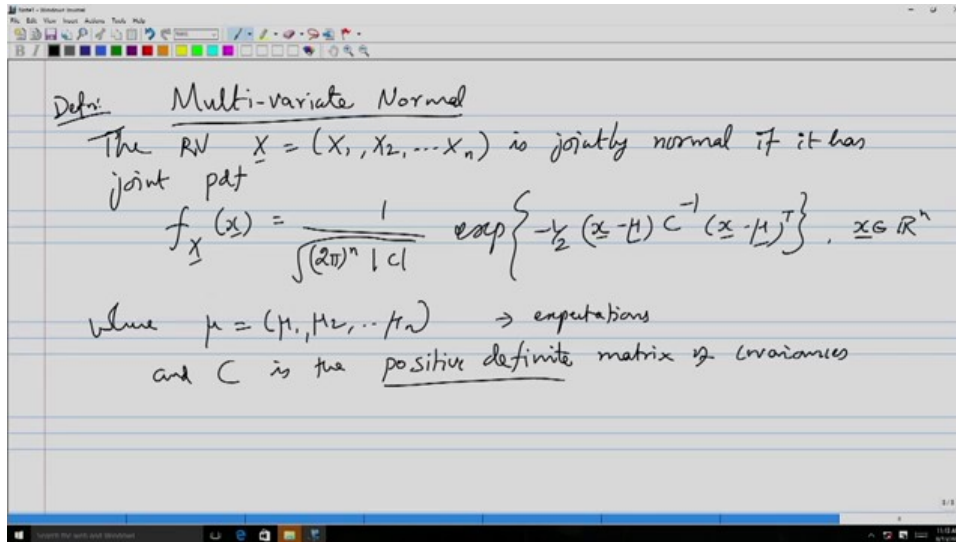 Note1 - Windows Journal
File Edit View Insert Actions Tools Help
B I
Defn: Multi-variate Normal
The RV X = (X₁, X₂, ... Xₙ) is jointly normal if it has
joint pdf
f_X (x) = 1 / √((2π)ⁿ |C|) exp{ -1/2 (x - μ) C⁻¹ (x - μ)ᵀ }, x ∈ ℝⁿ
where μ = (μ₁, μ₂, .. μₙ) → expectations
and C is the positive definite matrix of covariances
Search the web and Windows